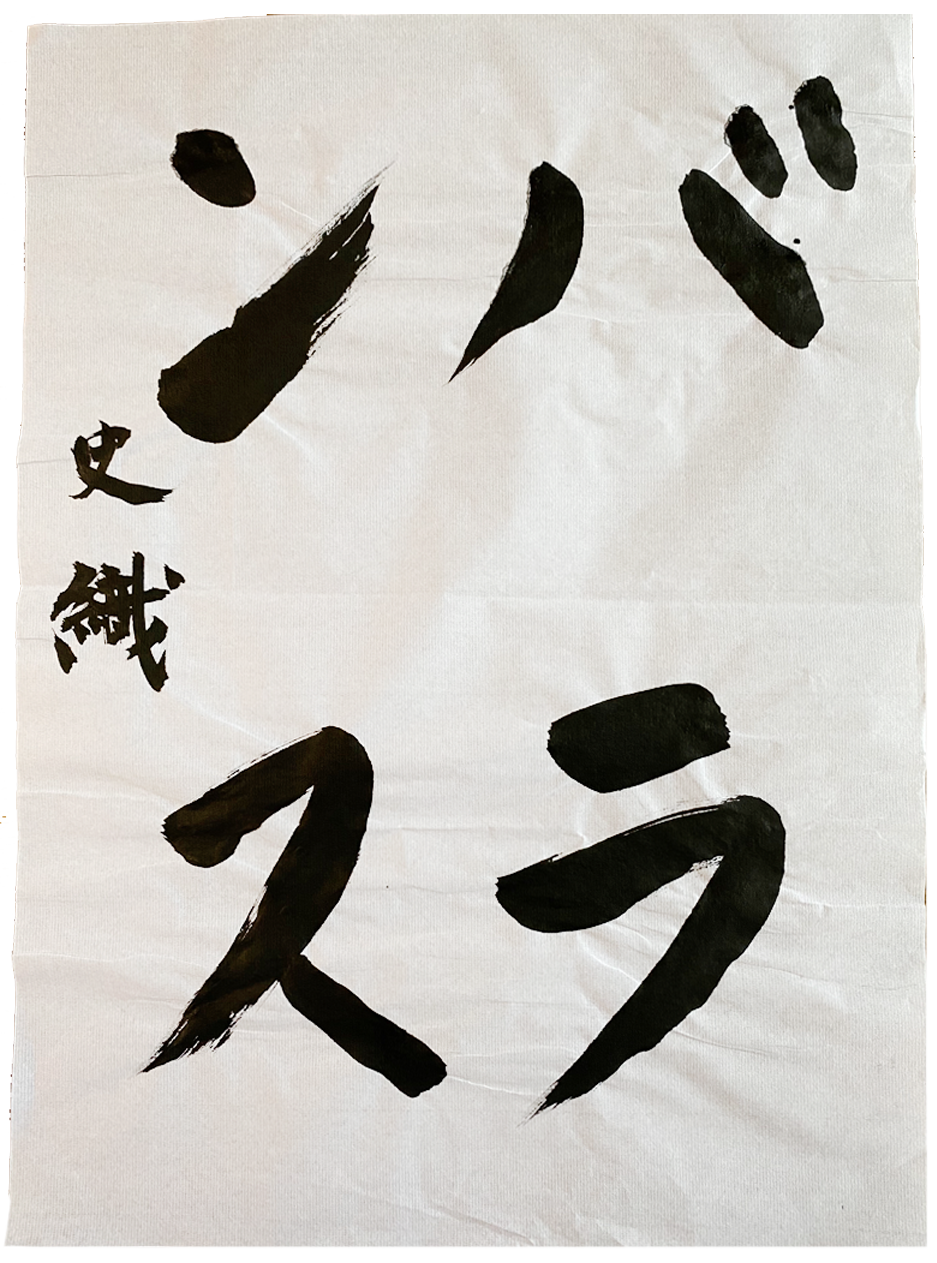 バラ
ンス
史織